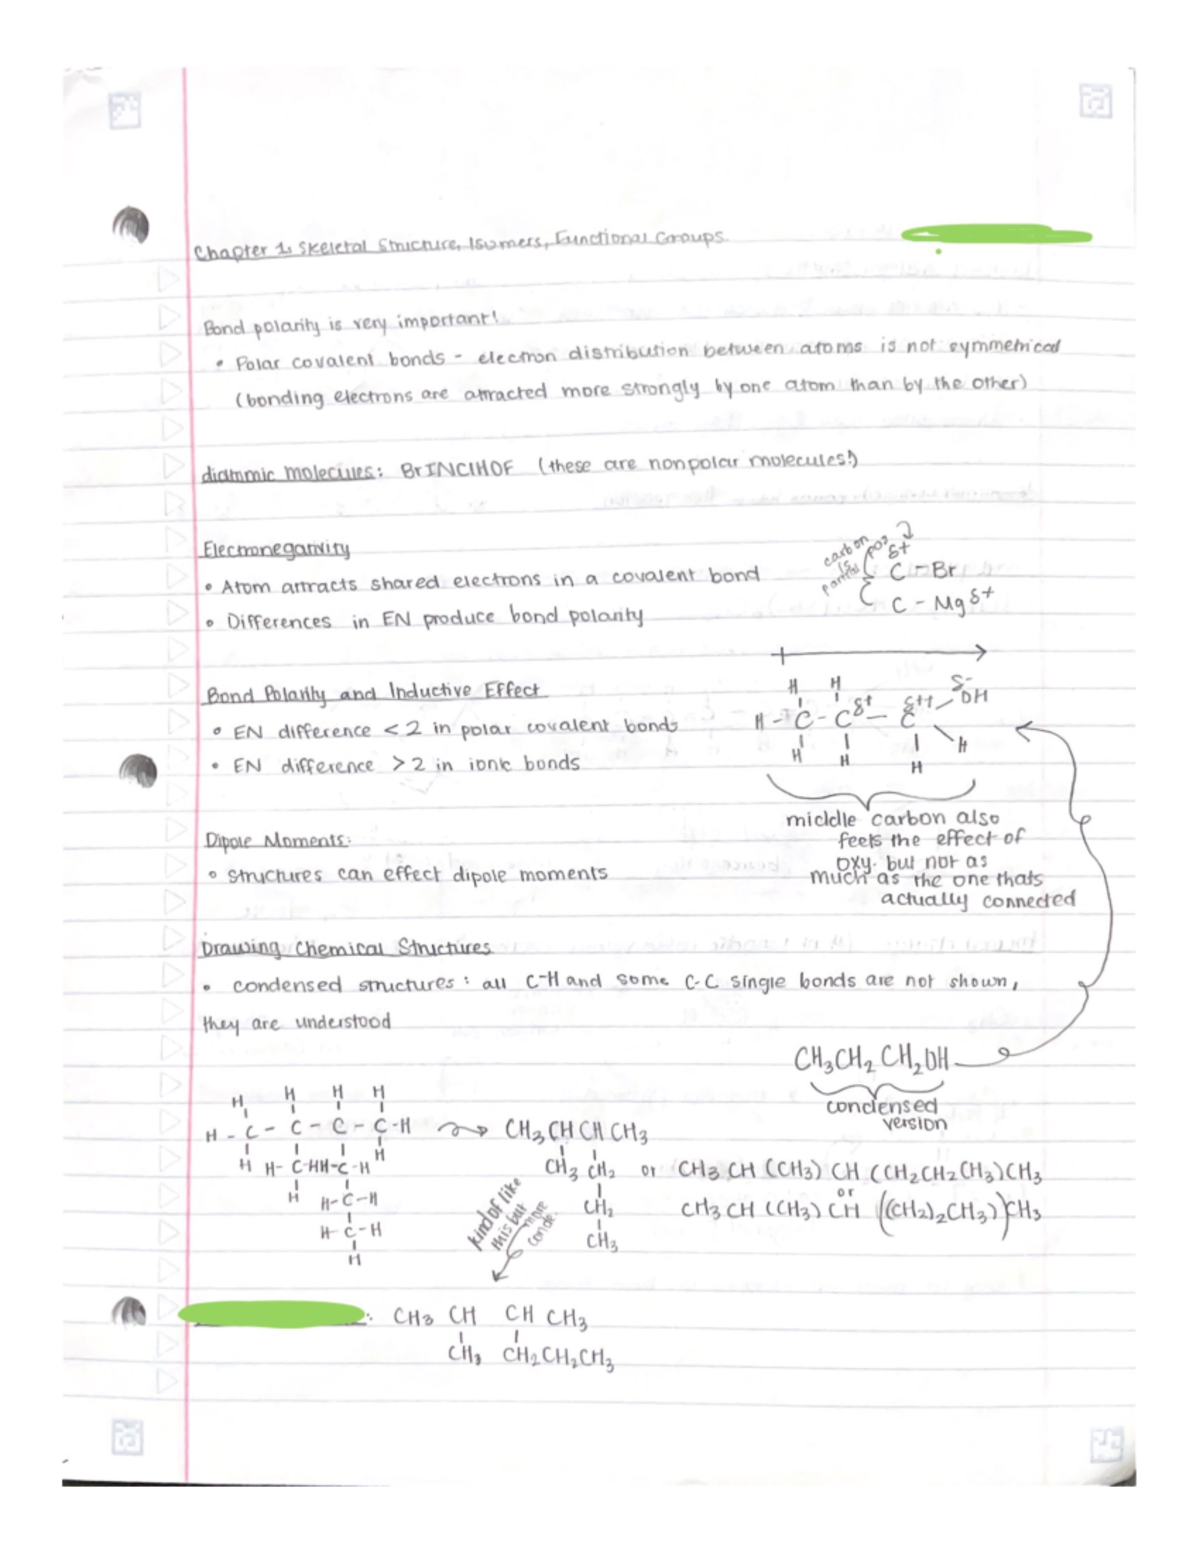 Chapter 1: Skeletal Structure, Isomers, Functional Groups
Bond polarity is very important!
• Polar covalent bonds - electron distribution between atoms is not symmetrical
(bonding electrons are attracted more strongly by one atom than by the other)
diatomic molecules: BrINClHOF (these are nonpolar molecules!)
Electronegativity
carbon is partial pos
δ+
C - Br
• Atom attracts shared electrons in a covalent bond
C - Mg δ+
• Differences in EN produce bond polarity
Bond Polarity and Inductive Effect
H H δ-
H - C - C δ+ - C δ++ OH
• EN difference < 2 in polar covalent bonds
H H H H
• EN difference > 2 in ionic bonds
middle carbon also
feels the effect of
oxy. but not as
much as the one thats
actually connected
Dipole Moments:
• structures can effect dipole moments
Drawing Chemical Structures
• condensed structures: all C-H and some C-C single bonds are not shown,
they are understood
CH3CH2CH2OH
condensed
version
H H H H
H - C - C - C - C - H
H H - C - HH - C - H H
H H - C - H
H - C - H
H
CH3 CH CH CH3
CH3 CH2 or CH3 CH (CH3) CH (CH2CH2CH3)CH3
or
CH2 CH3 CH (CH3) CH ((CH2)2CH3)CH3
CH3
kind of like
this but
more
conde.
: CH3 CH CH CH3
CH3 CH2CH2CH3